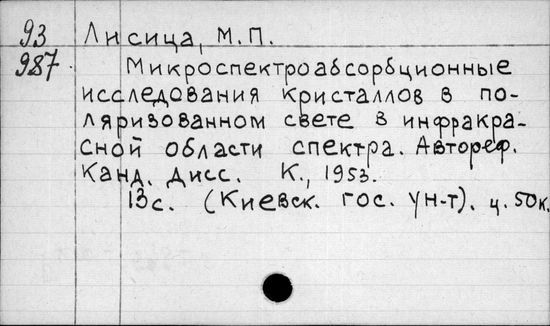 93 Лисица, М.П.
987. Микроспектроабсорбционные
исследования кристаллов в по-
ляризованном свете в инфракра-
сной области спектра. Автореф.
Канд. дисс. К., 1953.
13с. (Киевск. гос. ун-т). ц. 50к.